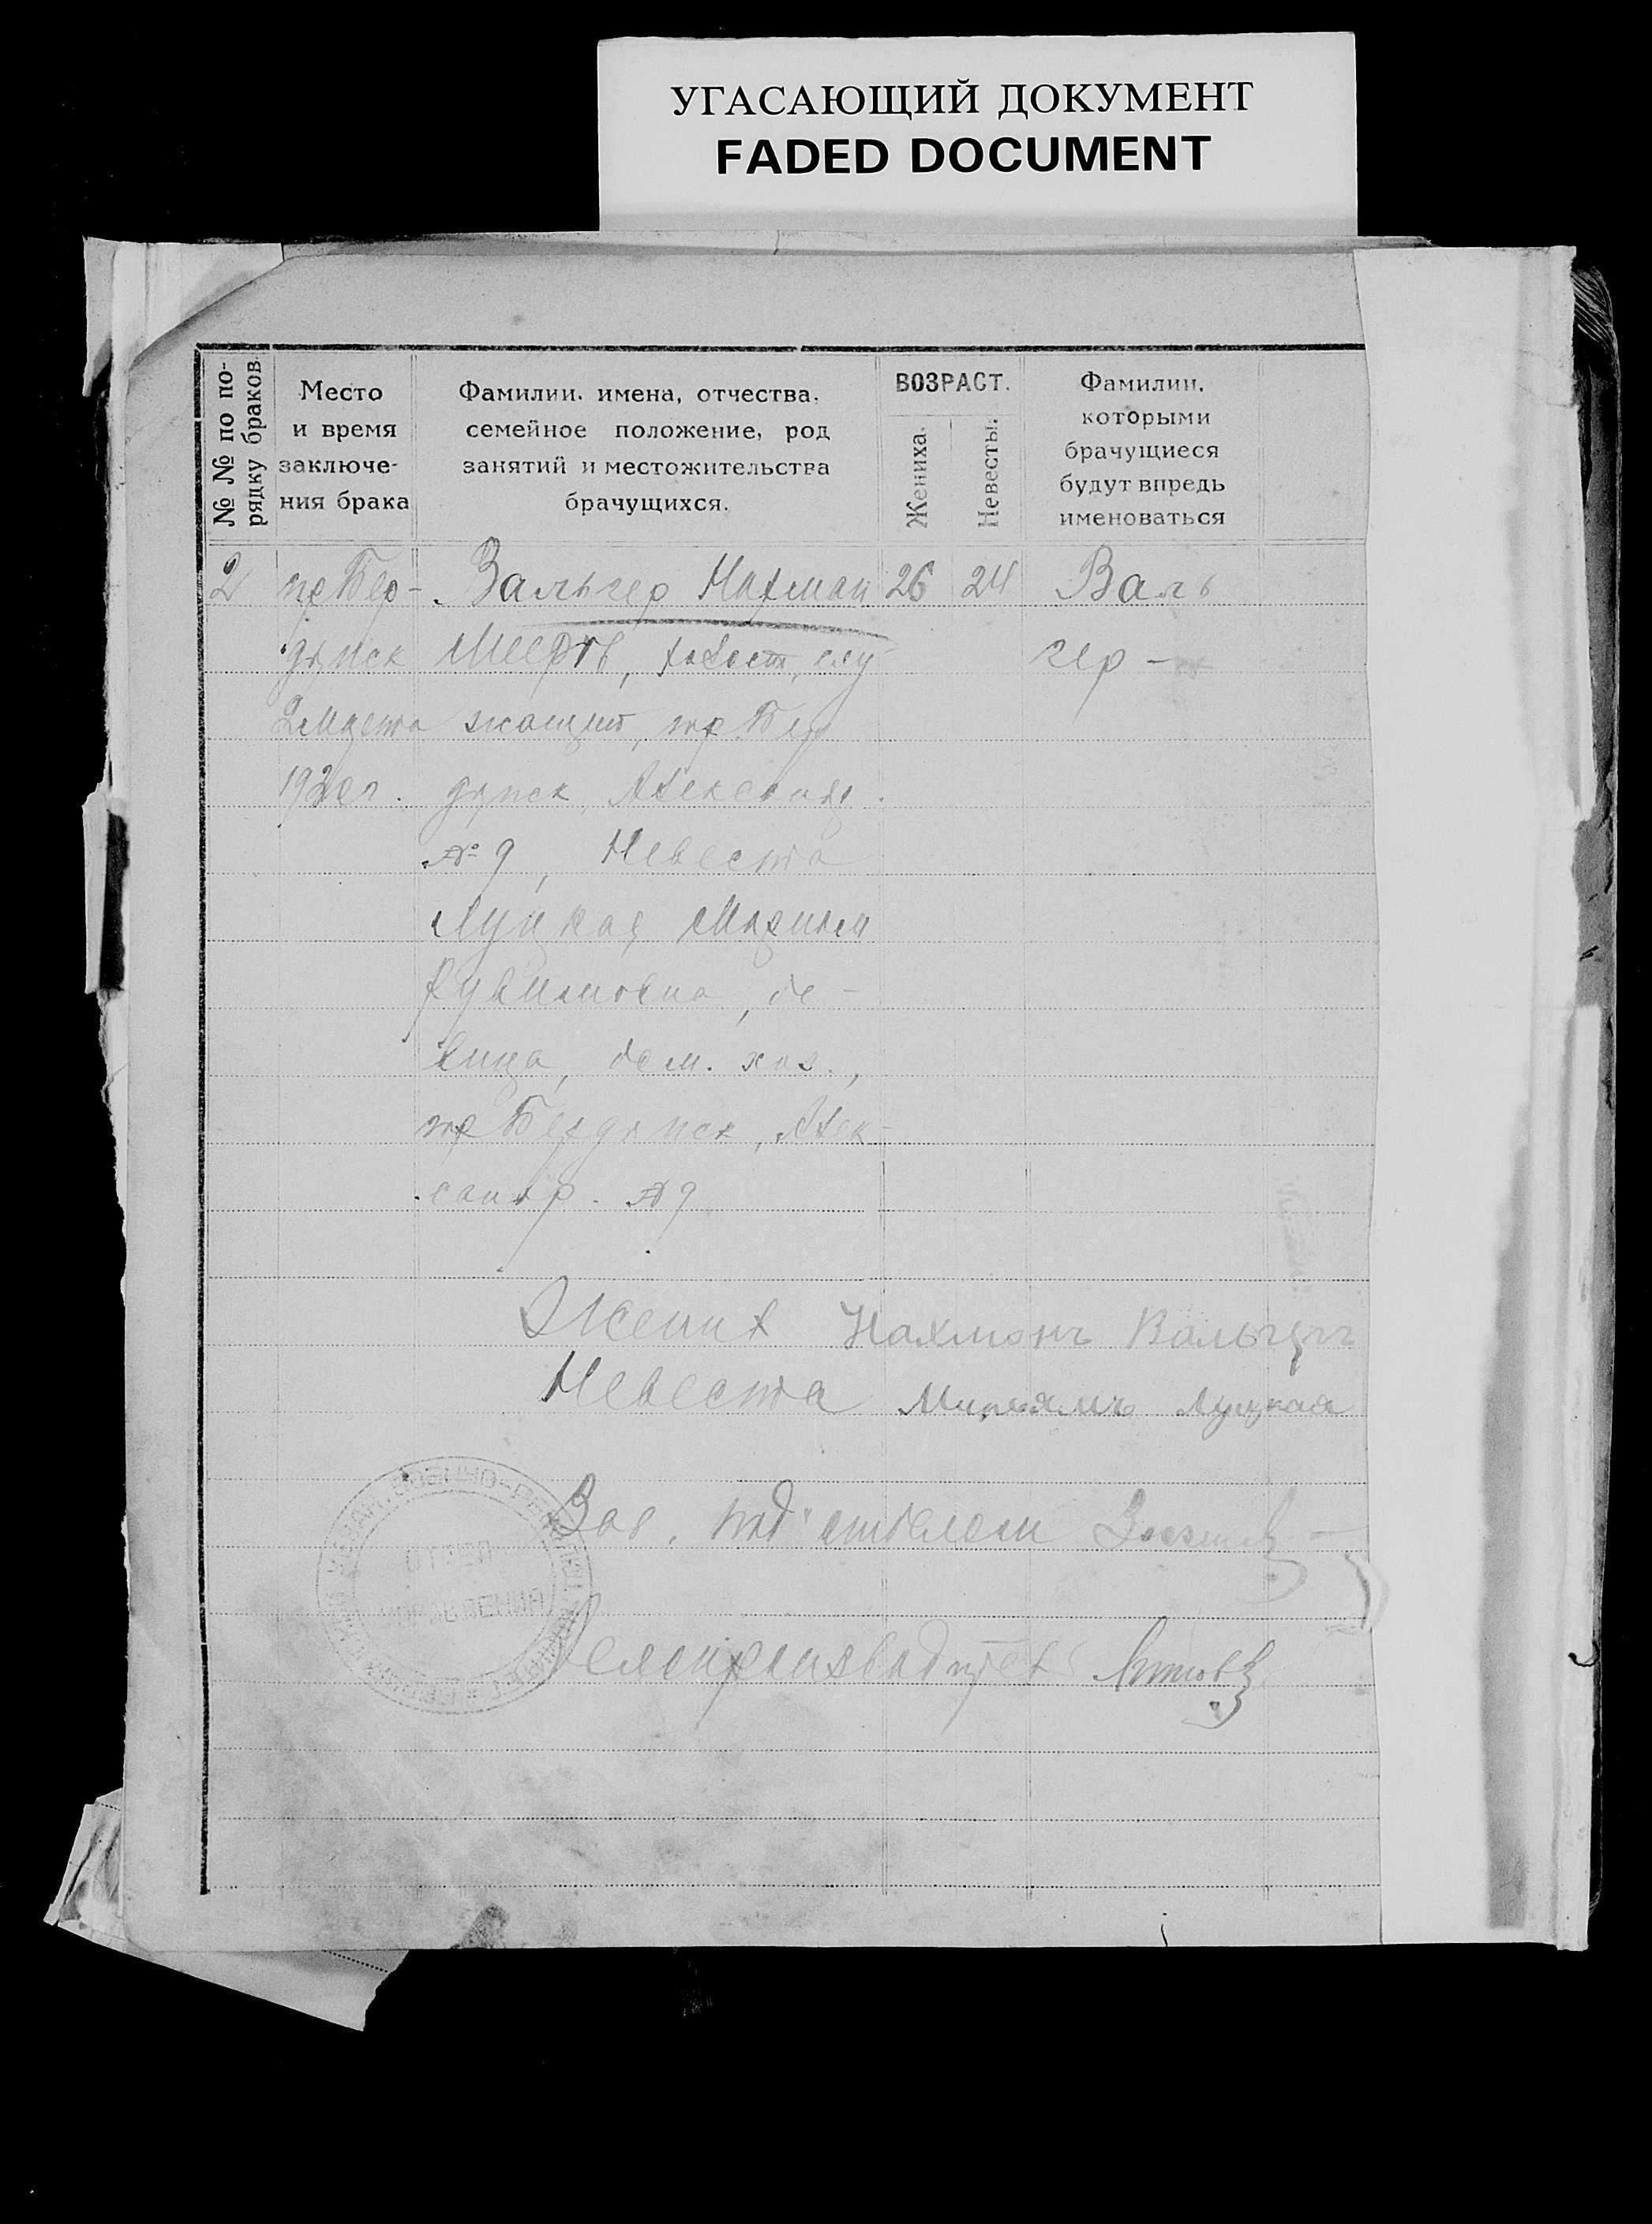 УГАСАЮЩИЙ ДОКУМЕНТ
FADED DOCUMENT
№ № по по-
рядку браков
Место
и время
заключе-
ния брака
Фамилии, имена, отчества,
семейное положение, род
занятий и местожительства
брачущихся.
ВОЗРАСТ.
Жениха.
Невесты.
Фамилии,
которыми
брачущиеся
будут впредь
именоваться
2 гр Бер- Вальгер Нахман 26 24 Валь
дянск Мееров, холост, слу- гер -
2 марта жащий, гр Бер
1920 г. дянск, Александр.
№ 9, Невеста
Луцкая Мириам
Рувимовна, де-
вица, дом. хоз.,
гр Бердянск, Алек-
сандр. № 9
Жених Нахмонъ Вальгеръ
Невеста Мирьямъ Луцкая
Зав. под'отделом
Делопроизводитель
ОТДЕЛ
УПРАВЛЕНИЯ